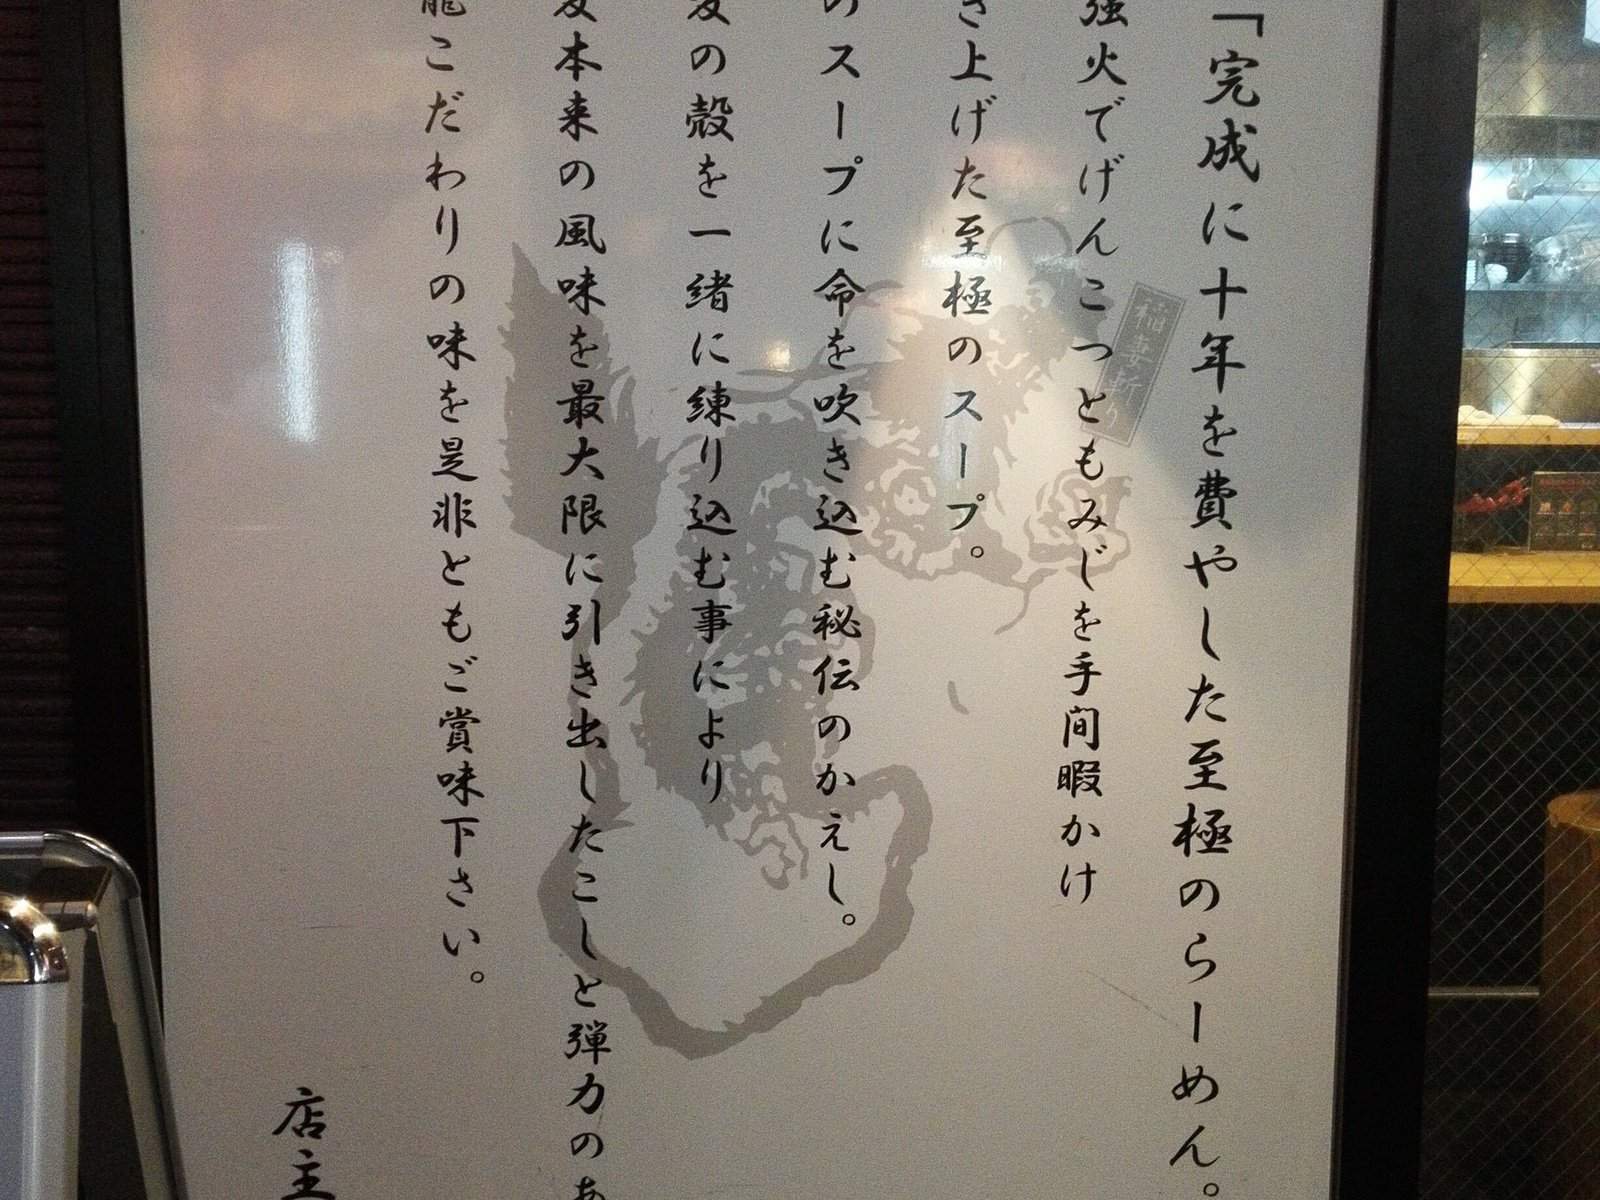 「完成に十年を費やした至極のらーめん。
強火でげんこつともみじを手間暇かけ
き上げた至極のスープ。
のスープに命を吹き込む秘伝のかえし。
麦の殻を一緒に練り込む事により
麦本来の風味を最大限に引き出したこしと弾力のあ
龍こだわりの味を是非ともご賞味下さい。
店主